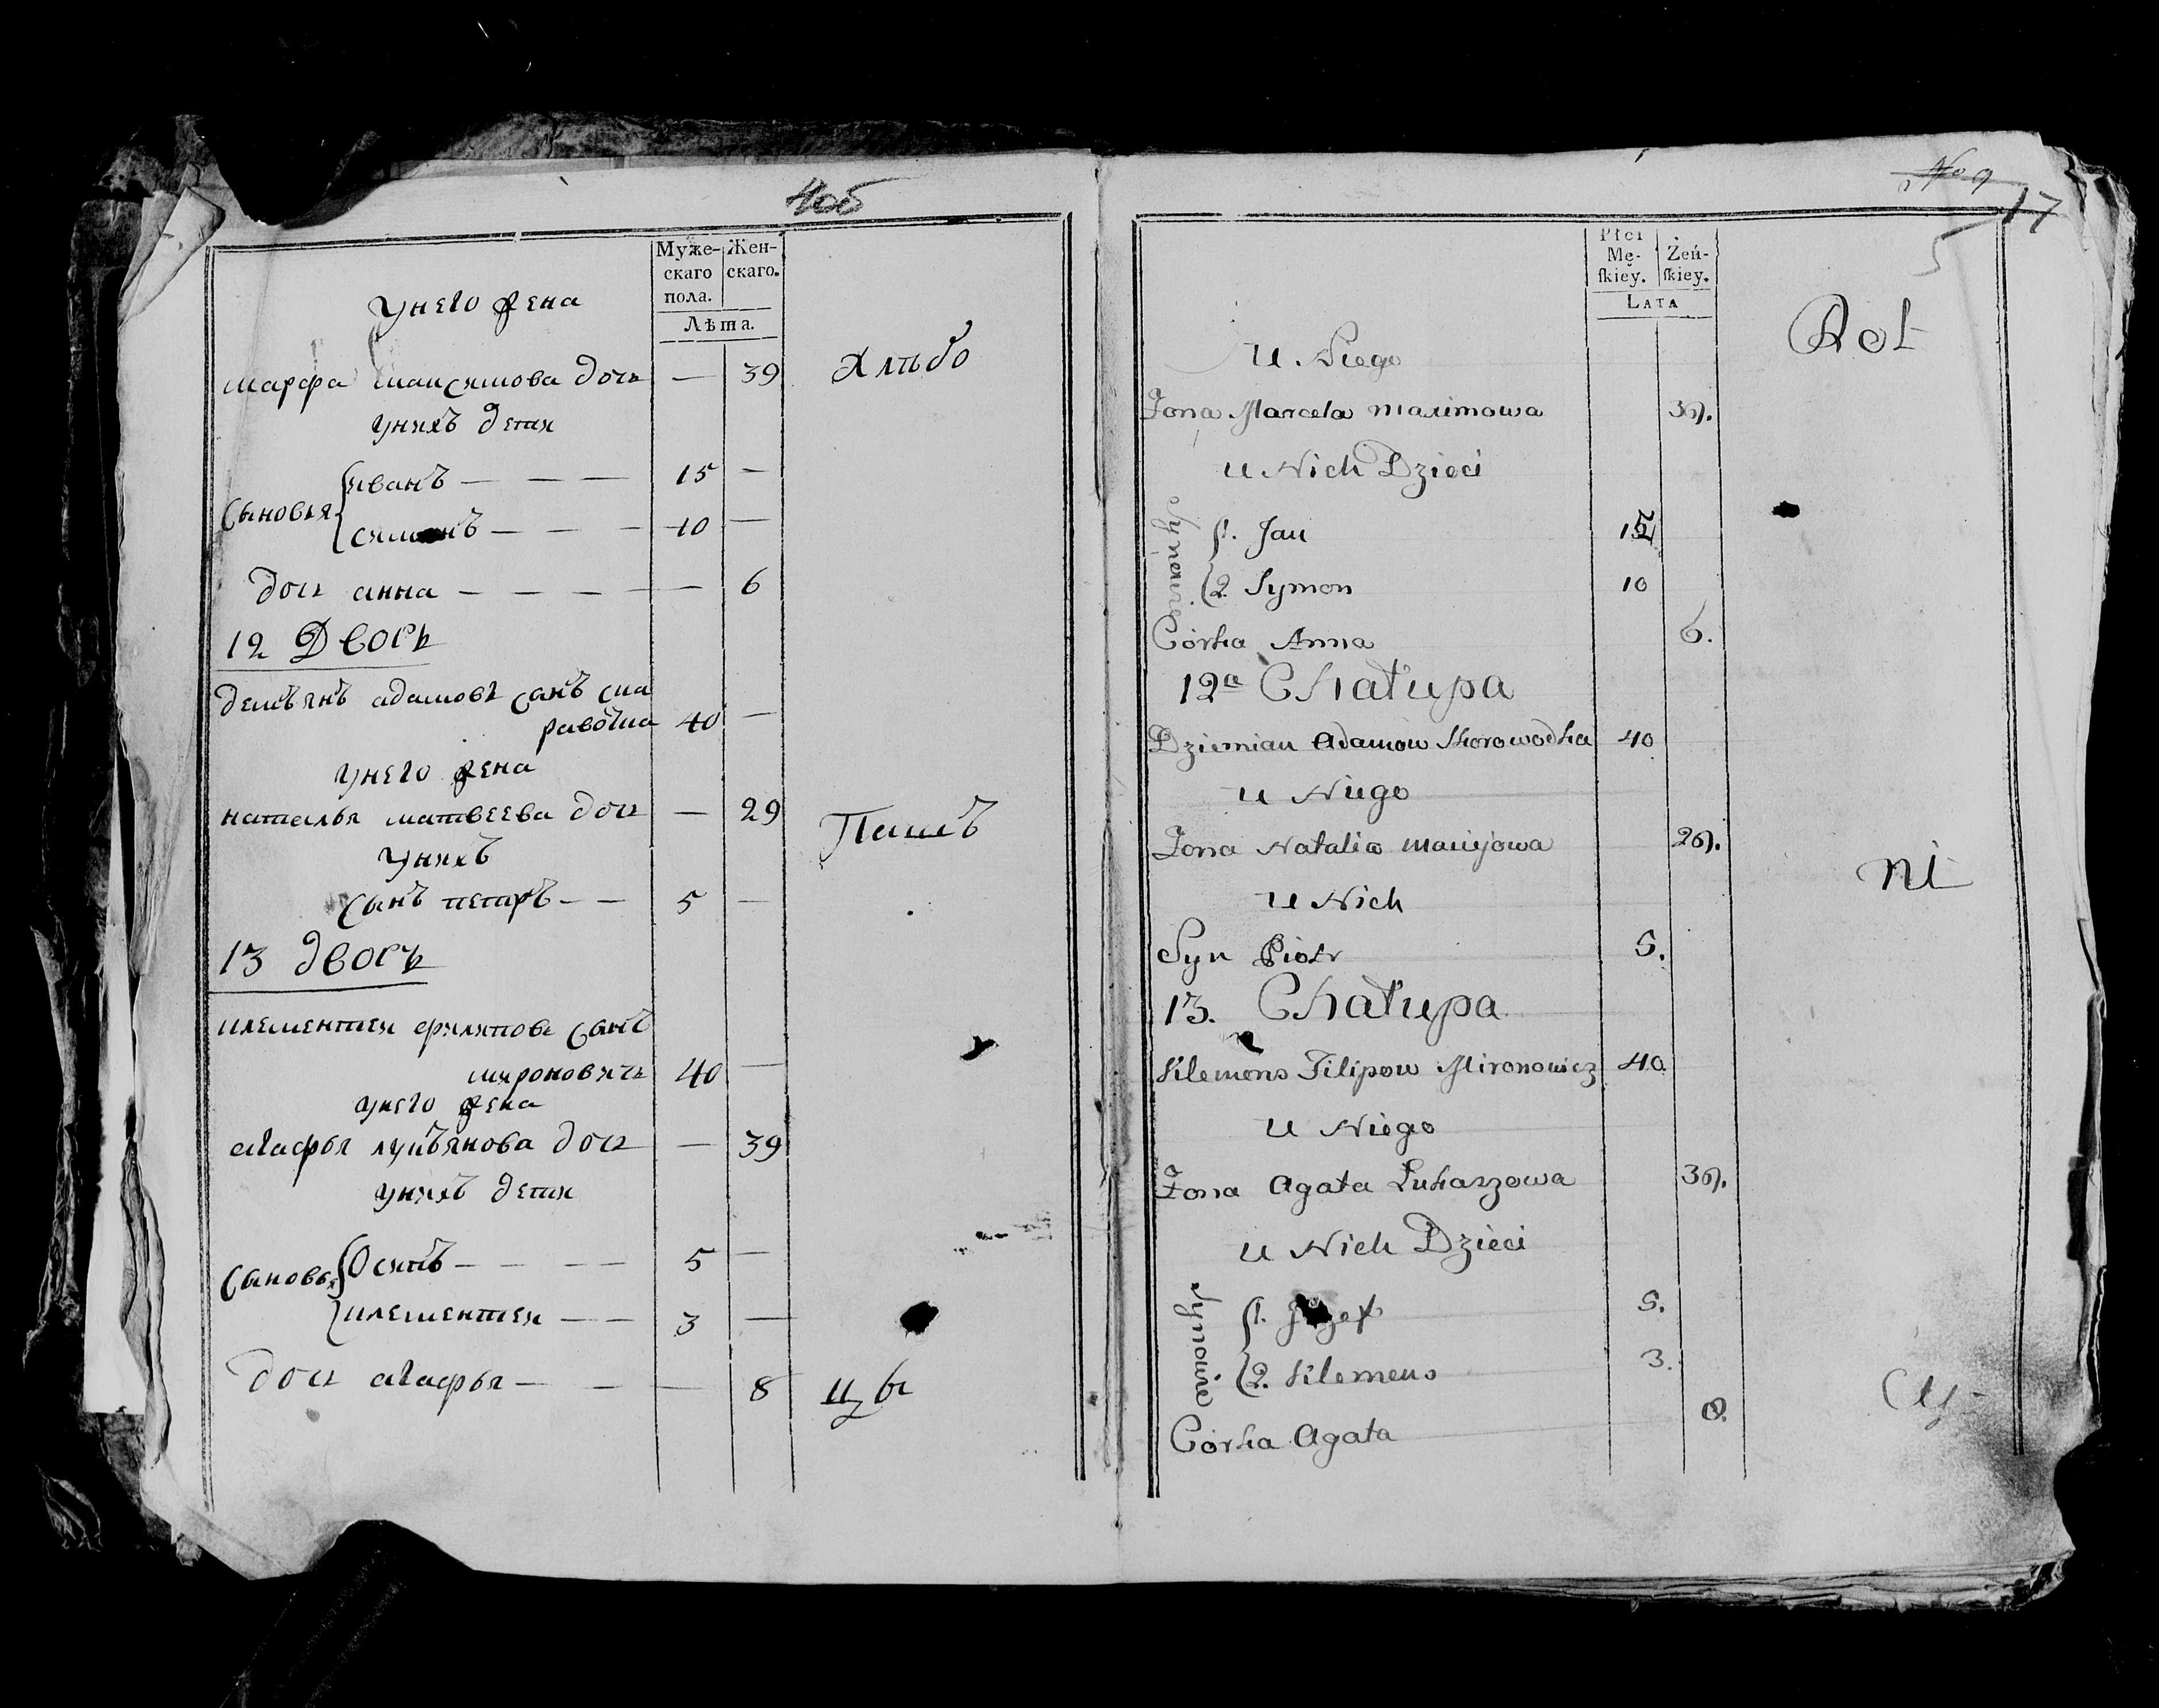 406
Муже-
скаго
пола.
Жен-
скаго.
Лѣта.
Унего жена
марфа максимова дочь — 39
Хлѣбо
Унихъ дети
Сыновья
иванъ — — — 15 —
симонъ — — — 10 —
дочь анна — — — — 6
12 Дворъ
демъянъ адамовъ сынъ ска
равотка 40 —
Унего жена
наталья матвеева дочь — 29
Пашъ
Унихъ
сынъ петръ — — 5 —
13 дворъ
клементей филипове сынъ
мироновичь 40 —
Унего жена
агафья лукъянова дочь — 39
Унихъ дети
Сыновья
Осипъ — — — — 5 —
клементей — — 3 —
дочь агафья — — — 8
цы
No 9
17
5
Płci
Mę-
ſkiey.
Żeń-
ſkiey.
LATA
Rol
U Niego
Żona Marcela Maximowa 39.
U Nich Dzieci
Synowie
1. Jan 15
2. Symon 10
Córka Anna 6.
12a Chałupa
Dziemian Adamow Skorowodka 40
U Niego
Żona Natalia Maciejowa 29.
ni
U Nich
Syn Piotr 5.
13. Chałupa
Klemens Filipow Mironowicz 40
U Niego
Żona Agata Łukaszowa 39.
U Nich Dzieci
Synowie
1. Jozef 5.
2. Klemens 3.
Córka Agata 8.
cy